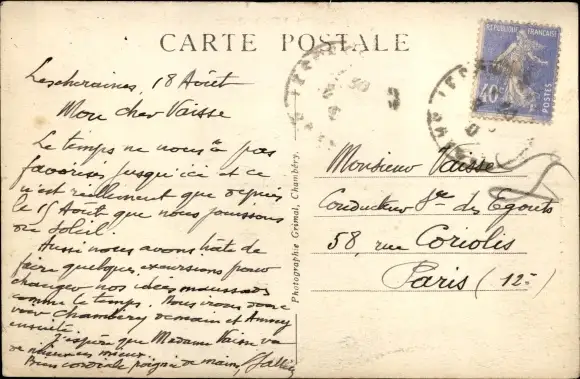 CARTE POSTALE
Lescheraines, 18 Août
Mon cher Vaisse
Le temps ne nous a pas
favorisés jusqu'ici et ce
n'est réellement que depuis
le 15 Août que nous jouissons
du soleil.
Aussi nous avons hâte de
faire quelques excursions pour
changer nos idées maussades
comme le temps. Nous irons donc
voir Chambéry demain et Annecy
ensuite.
J'espère que Madame Vaisse va
de mieux en mieux.
Bien cordiale poignée de mains
Photographie Grimal, Chambéry.
REPUBLIQUE FRANÇAISE
40c
POSTES
Monsieur Vaisse
Conducteur Sce des Egouts
58, rue Coriolis
Paris (12e)